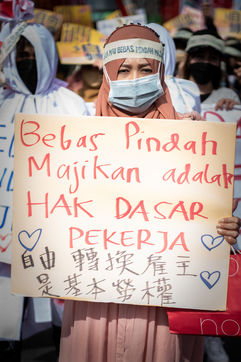 Bebas Pindah
Majikan adalah
HAK DASAR
PEKERJA
自由 轉換 雇主
是基本 勞權